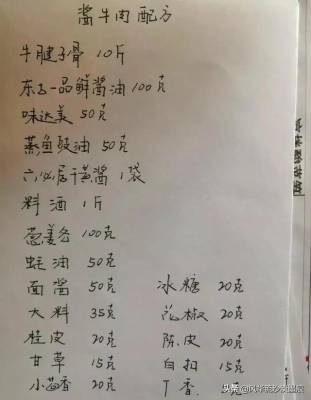 酱牛肉配方
牛腱子骨 10斤
东古一品鲜酱油100克
味达美 50克
蒸鱼豉油 50克
六必居干黄酱 1袋
料酒 1斤
葱姜各 100克
蚝油 50克
面酱 50克 冰糖 20克
大料 35克 花椒 20克
桂皮 20克 陈皮 20克
甘草 15克 白扣 15克
小茴香 20克 丁香
头条